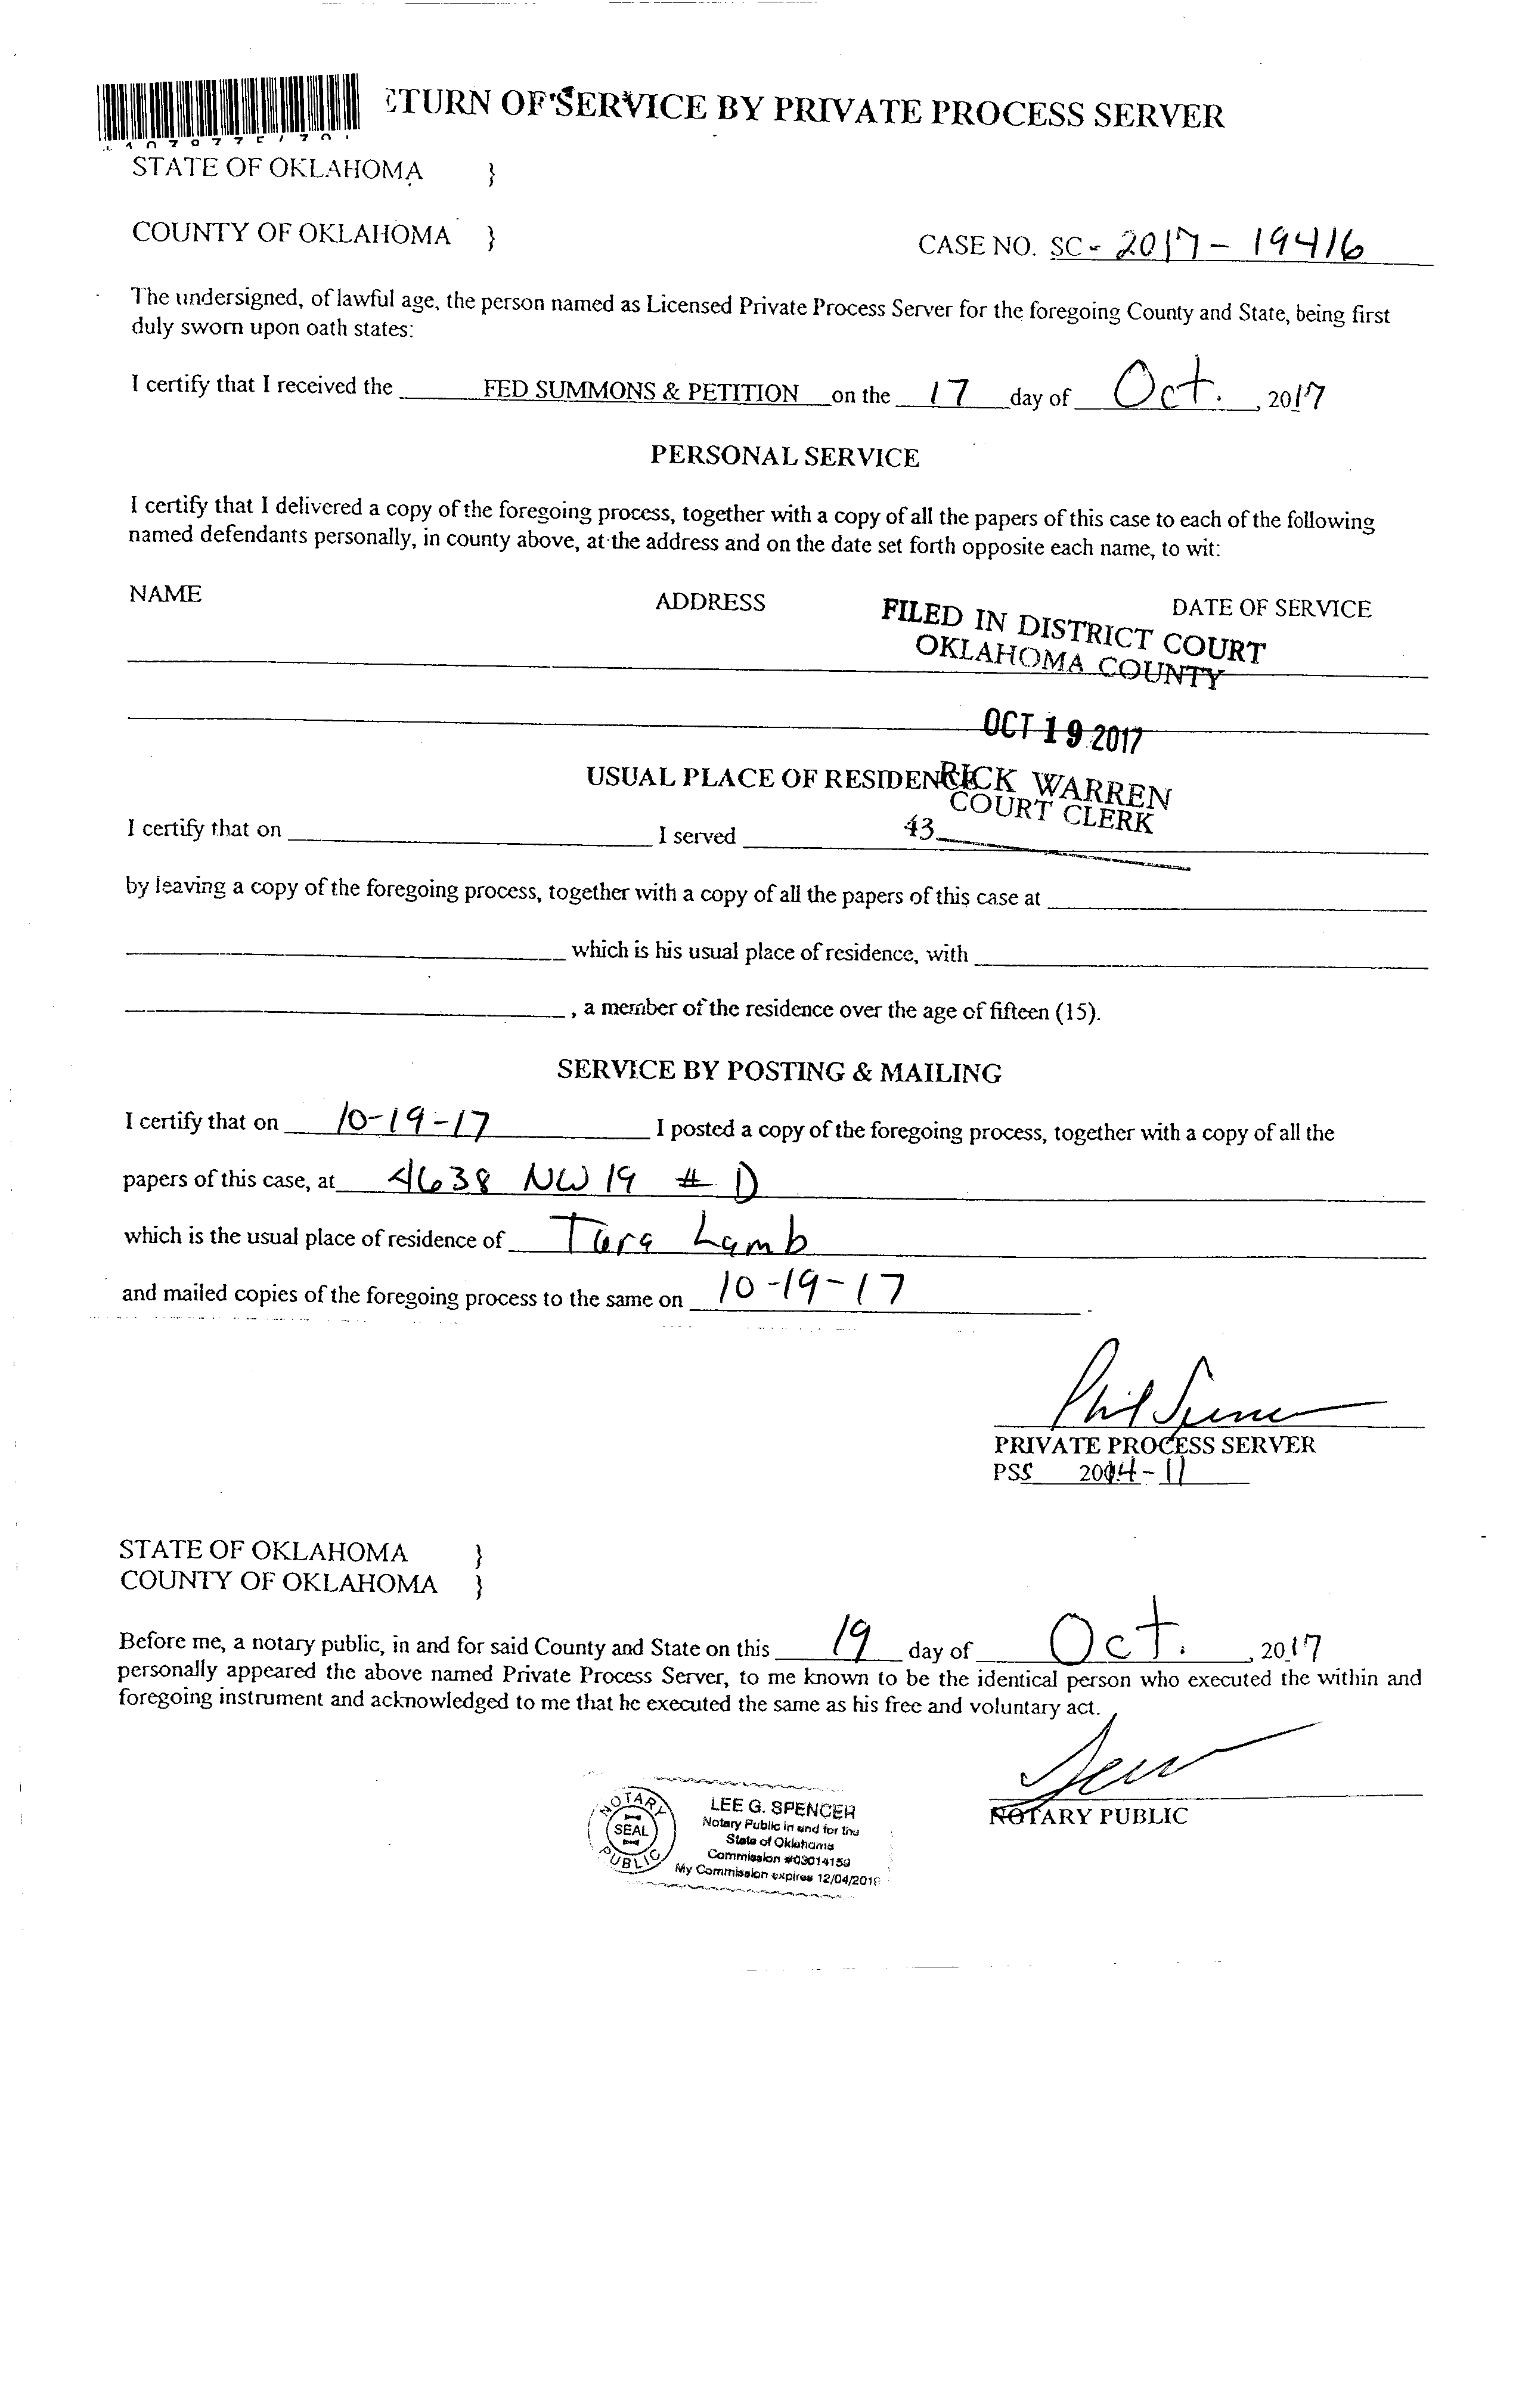 TURN OF SERVICE BY PRIVATE PROCESS SERVER
STATE OF OKLAHOMA }
COUNTY OF OKLAHOMA }
CASE NO. SC - 2017 - 19416
The undersigned, of lawful age, the person named as Licensed Private Process Server for the foregoing County and State, being first
duly sworn upon oath states:
I certify that I received the FED SUMMONS & PETITION on the 17 day of Oct. , 2017
PERSONAL SERVICE
I certify that I delivered a copy of the foregoing process, together with a copy of all the papers of this case to each of the following
named defendants personally, in county above, at the address and on the date set forth opposite each name, to wit:
NAME ADDRESS DATE OF SERVICE
FILED IN DISTRICT COURT
OKLAHOMA COUNTY
OCT 19 2017
USUAL PLACE OF RESIDENCE
RICK WARREN
COURT CLERK
43
I certify that on I served
by leaving a copy of the foregoing process, together with a copy of all the papers of this case at
which is his usual place of residence, with
, a member of the residence over the age of fifteen (15).
SERVICE BY POSTING & MAILING
I certify that on 10-19-17 I posted a copy of the foregoing process, together with a copy of all the
papers of this case, at 4638 NW 19 # D
which is the usual place of residence of Tara Lamb
and mailed copies of the foregoing process to the same on 10-19-17
PRIVATE PROCESS SERVER
PSS 2014-11
STATE OF OKLAHOMA }
COUNTY OF OKLAHOMA }
Before me, a notary public, in and for said County and State on this 19 day of Oct. , 2017
personally appeared the above named Private Process Server, to me known to be the identical person who executed the within and
foregoing instrument and acknowledged to me that he executed the same as his free and voluntary act.
NOTARY PUBLIC
NOTARY
SEAL
PUBLIC
LEE G. SPENCER
Notary Public in and for the
State of Oklahoma
Commission #03014159
My Commission expires